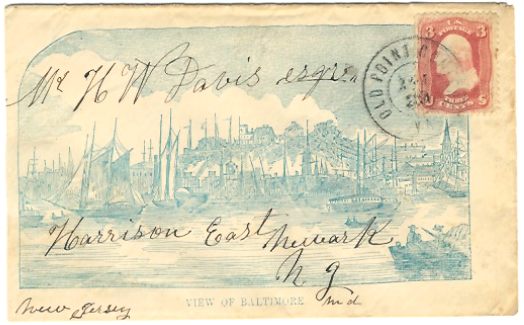 Mr H W Davis esqre.
U.S. POSTAGE
3 3
THREE CENTS
OLD POINT
Harrison East Newark
N J
VIEW OF BALTIMORE
Md
New Jersey